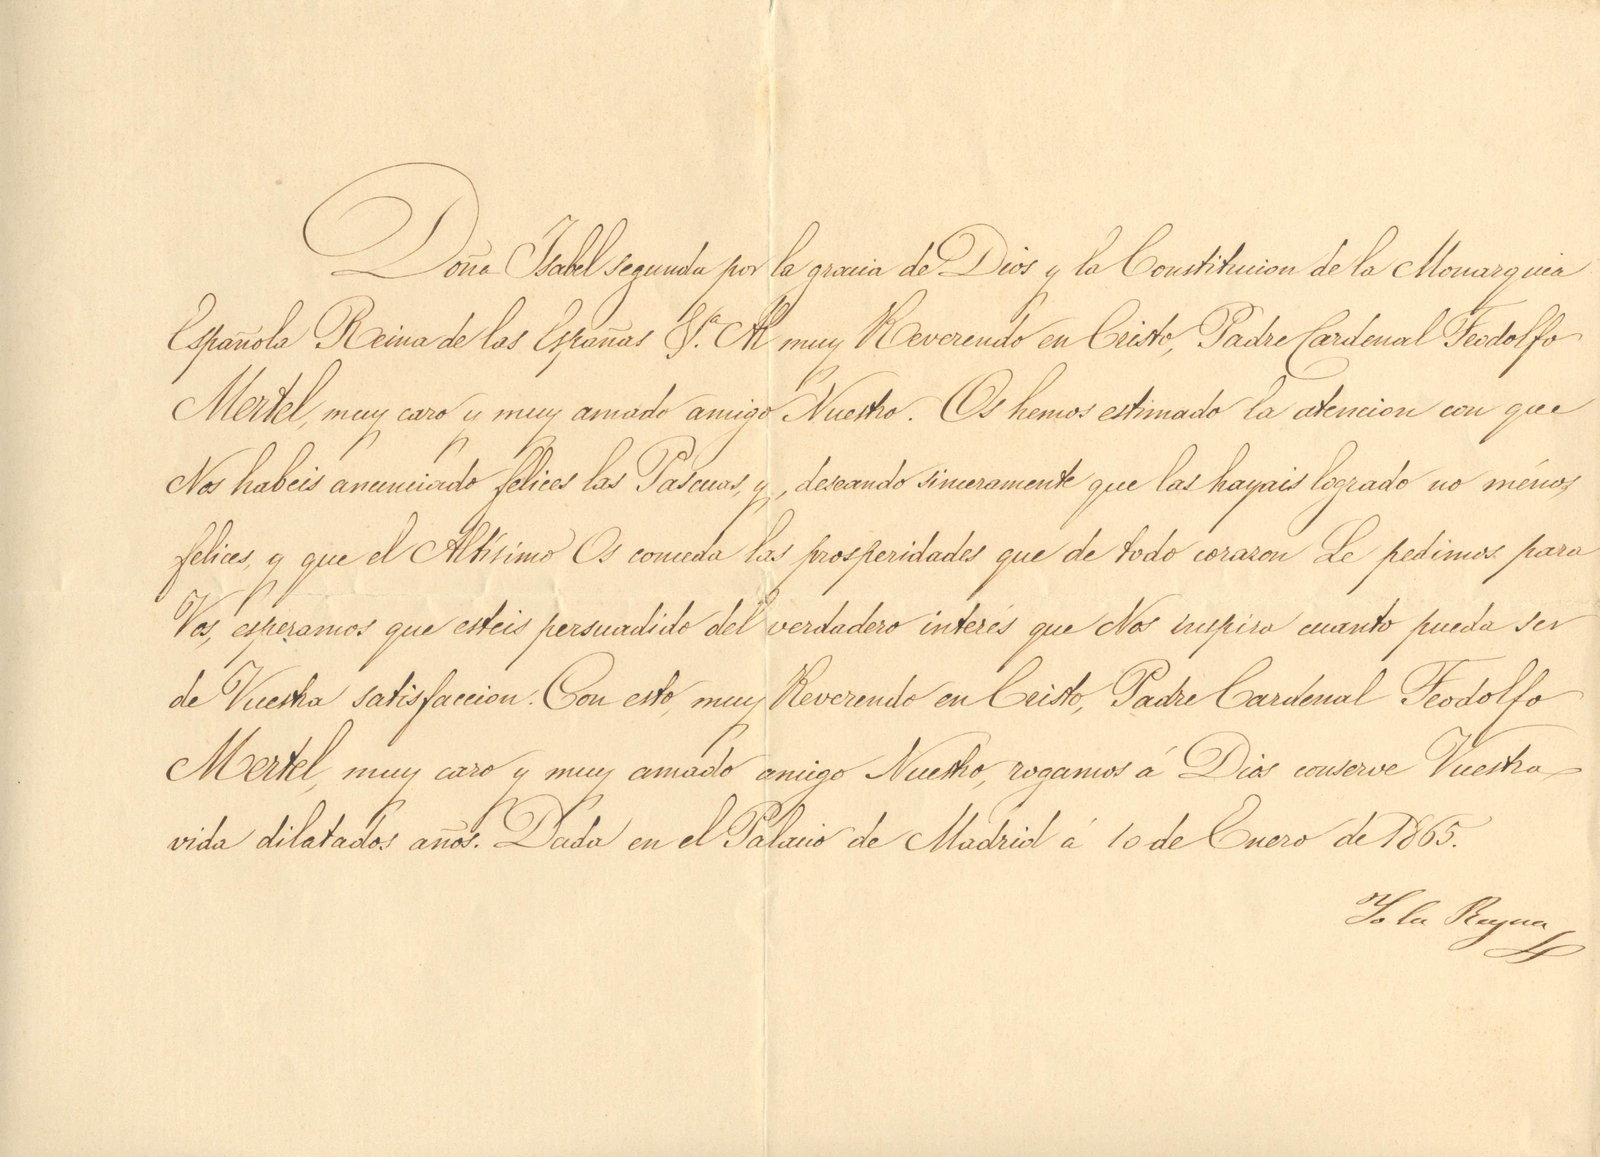 Doña Isabel segunda por la gracia de Dios y la Constitucion de la Monarquia
Española Reina de las Españas &.ª Al muy Reverendo en Cristo, Padre Cardenal Teodolfo
Mertel, muy caro y muy amado amigo Nuestro. Os hemos estimado la atencion con que
Nos habeis anunciado felices las Pascuas, y, deseando sinceramente que las hayais logrado no ménos
felices, y que el Altísimo Os conceda las prosperidades que de todo corazon Le pedimos para
Vos, esperamos que esteis persuadido del verdadero interés que Nos inspira cuanto pueda ser
de Vuestra satisfaccion. Con esto, muy Reverendo en Cristo, Padre Cardenal Teodolfo
Mertel, muy caro y muy amado amigo Nuestro, rogamos á Dios conserve Vuestra
vida dilatados años. Dada en el Palacio de Madrid á 10 de Enero de 1865.
Yo la Reyna